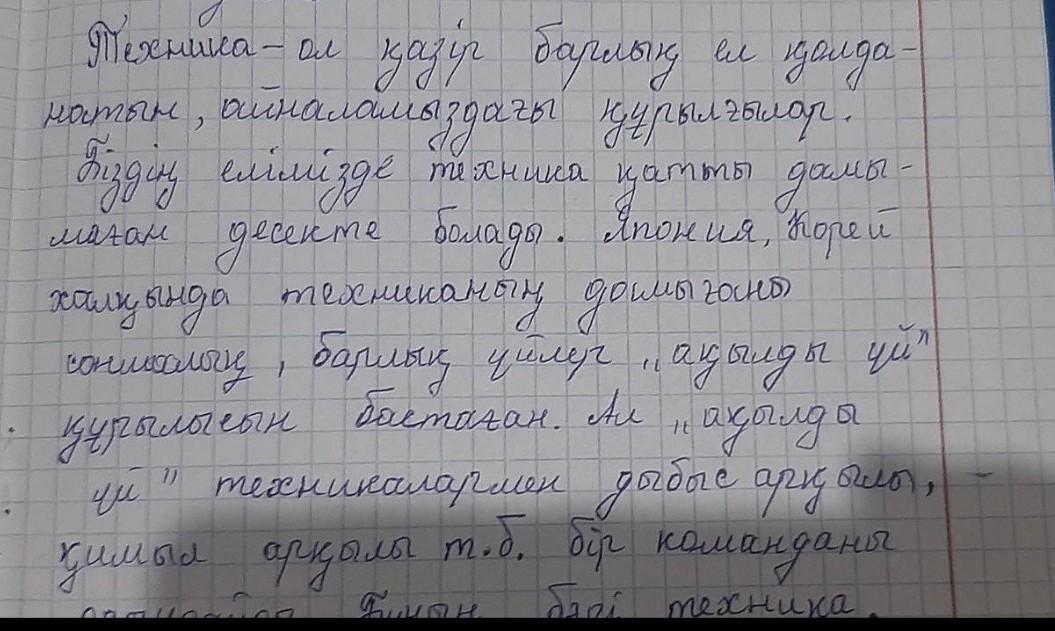 Техника – ол қазір барлық ел қолда-
натын, айналамыздағы құрылғылар.
Біздің елімізде техника қатты дамы-
маған десекте болады. Япония, Корей
халқында техниканың дамығаны
соншалық, барлық үйлер „ақылды үй"
құрылысын бастаған. Ал „ақылды
үй" техникалармен дыбыс арқылы, –
қимыл арқылы т.б. бір команданы
бәрі техника